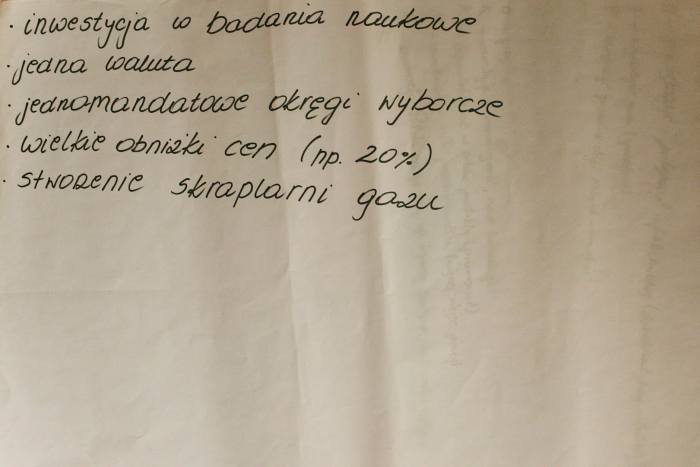 · inwestycja w badania naukowe
· jedna waluta
· jednomandatowe okręgi wyborcze
· wielkie obniżki cen (np. 20%)
· stwozenie skraplarni gazu